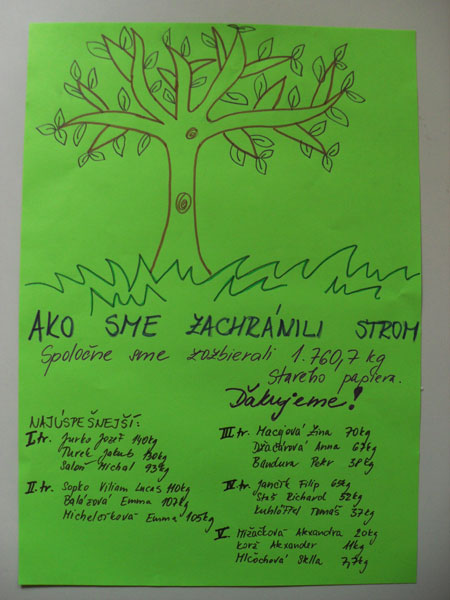 AKO SME ZACHRÁNILI STROM
Spoločne sme zozbierali 1.760,7 kg
starého papiera.
Ďakujeme!
NAJÚSPEŠNEJŠÍ:
I. tr. Jurko Jozef 140kg
Turek Jakub 130kg
Saloň Michal 93kg
II. tr. Sopko Viliam Lucas 110kg
Balázová Emma 107kg
Michelčíková Emma 105kg
III. tr. Macejová Zina 70kg
Džačárová Anna 67kg
Bandura Peter 38kg
IV. tr. Jančík Filip 65kg
Richard 52kg
Tomáš 37kg
V. Mižáčková Alexandra 20kg
Korž Alexander 11kg
Mlčochová 7,7kg